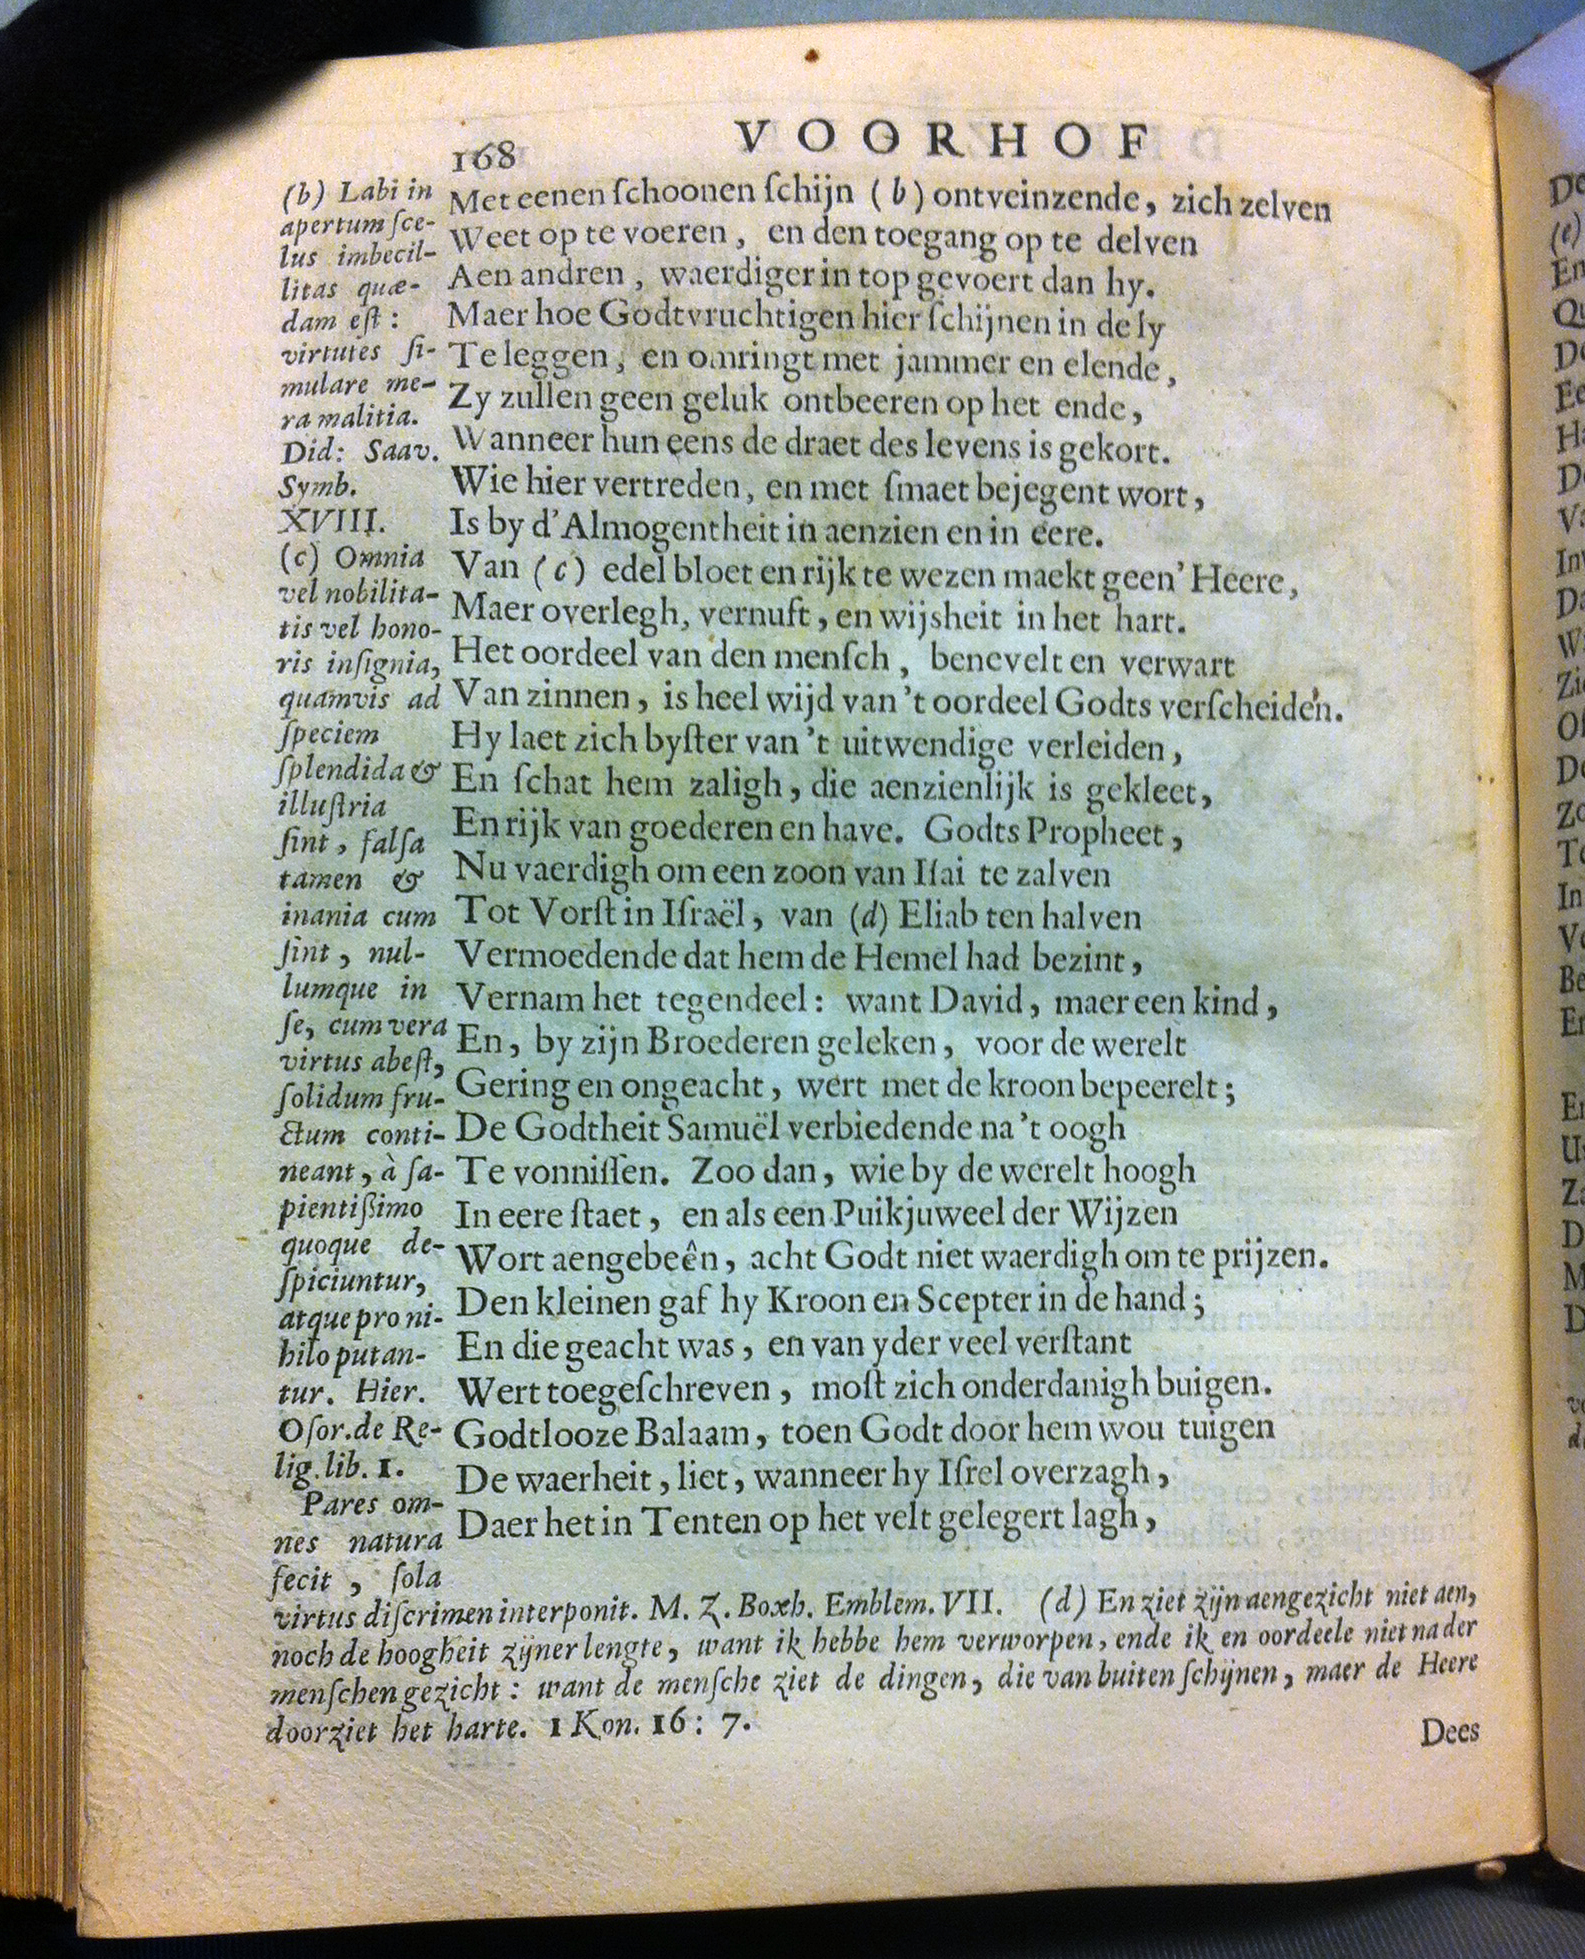 168
VOORHOF
Met eenen ſchoonen ſchijn (b) ontveinzende, zich zelven
Weet op te voeren, en den toegang op te delven
Aen andren, waerdiger in top gevoert dan hy.
Maer hoe Godtvruchtigen hier ſchijnen in de ly
Te leggen, en omringt met jammer en elende,
Zy zullen geen geluk ontbeeren op het ende,
Wanneer hun eens de draet des levens is gekort.
Wie hier vertreden, en met ſmaet bejegent wort,
Is by d'Almogentheit in aenzien en in eere.
Van (c) edel bloet en rijk te wezen maekt geen' Heere,
Maer overlegh, vernuft, en wijsheit in het hart.
Het oordeel van den menſch, benevelt en verwart
Van zinnen, is heel wijd van 't oordeel Godts verſcheiden.
Hy laet zich byſter van 't uitwendige verleiden,
En ſchat hem zaligh, die aenzienlijk is gekleet,
En rijk van goederen en have. Godts Propheet,
Nu vaerdigh om een zoon van Iſai te zalven
Tot Vorſt in Iſraël, van (d) Eliab ten halven
Vermoedende dat hem de Hemel had bezint,
Vernam het tegendeel: want David, maer een kind,
En, by zijn Broederen geleken, voor de werelt
Gering en ongeacht, wert met de kroon bepeerelt;
De Godtheit Samuël verbiedende na 't oogh
Te vonniſſen. Zoo dan, wie by de werelt hoogh
In eere ſtaet, en als een Puikjuweel der Wijzen
Wort aengebeên, acht Godt niet waerdigh om te prijzen.
Den kleinen gaf hy Kroon en Scepter in de hand;
En die geacht was, en van yder veel verſtant
Wert toegeſchreven, moſt zich onderdanigh buigen.
Godtlooze Balaam, toen Godt door hem wou tuigen
De waerheit, liet, wanneer hy Iſrel overzagh,
Daer het in Tenten op het velt gelegert lagh,
(b) Labi in
apertum ſce-
lus imbecil-
litas quæ-
dam eſt:
virtutes ſi-
mulare me-
ra malitia.
Did: Saav.
Symb.
XVIII.
(c) Omnia
vel nobilita-
tis vel hono-
ris inſignia,
quamvis ad
ſpeciem
ſplendida &
illuſtria
ſint, falſa
tamen &
inania cum
ſint, nul-
lumque in
ſe, cum vera
virtus abeſt,
ſolidum fru-
ctum conti-
neant, à ſa-
pientißimo
quoque de-
ſpiciuntur,
atque pro ni-
hilo putan-
tur. Hier.
Oſor. de Re-
lig. lib. 1.
Pares om-
nes natura
fecit, ſola
virtus diſcrimen interponit. M. Z. Boxh. Emblem. VII. (d) En ziet zijn aengezicht niet aen,
noch de hoogheit zijner lengte, want ik hebbe hem verworpen, ende ik en oordeele niet na der
menſchen gezicht: want de menſche ziet de dingen, die van buiten ſchijnen, maer de Heere
doorziet het harte. 1 Kon. 16: 7.
Dees